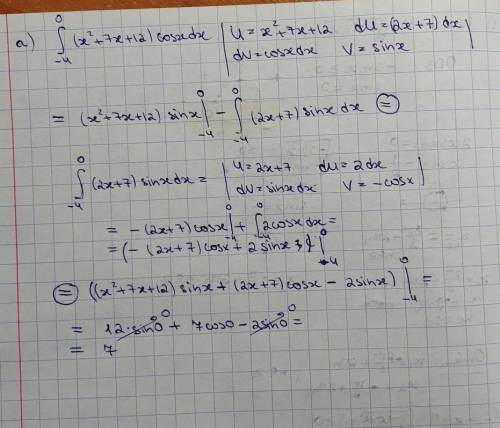 a) ∫₋₄⁰ (x²+7x+12) cosx dx | U = x²+7x+12 dU = (2x+7) dx
dV = cosx dx V = sinx |
= (x²+7x+12) sinx |₋₄⁰ - ∫₋₄⁰ (2x+7) sinx dx ⊜
∫₋₄⁰ (2x+7) sinx dx = | U = 2x+7 dU = 2dx
dV = sinx dx V = -cosx |
= -(2x+7) cosx |₋₄⁰ + ∫₋₄⁰ 2cosx dx =
= (-(2x+7) cosx + 2 sinx) |₋₄⁰
⊜ ((x²+7x+12) sinx + (2x+7) cosx - 2sinx) |₋₄⁰ =
= 12·sin0 ⁰ + 7cos0 - 2sin0 ⁰ =
= 7